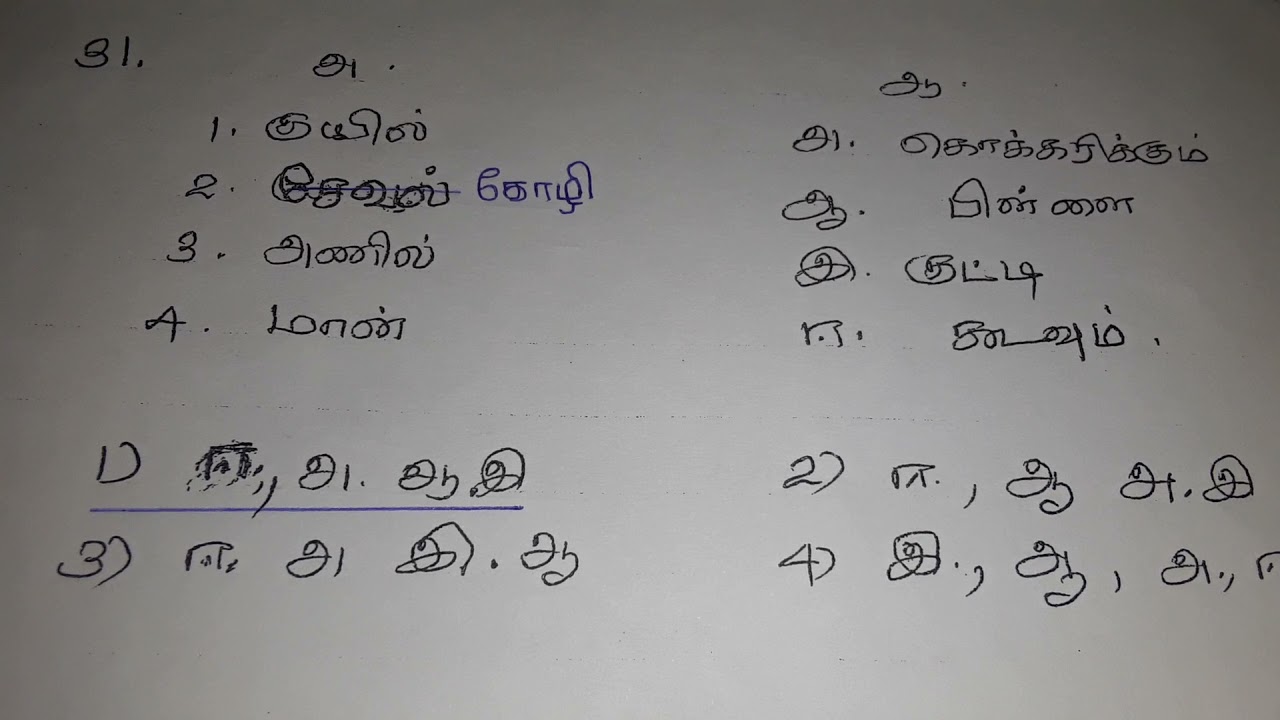 31. அ. ஆ.
1. குயில் அ. கொக்கரிக்கும்
2. சேவல் கோழி ஆ. பிள்ளை
3. அணில் இ. குட்டி
4. மான் ஈ. கூவும்.
1) ஈ., அ. ஆ.இ 2) ஈ., ஆ அ.இ
3) ஈ. அ இ.ஆ 4) இ., ஆ, அ., ஈ